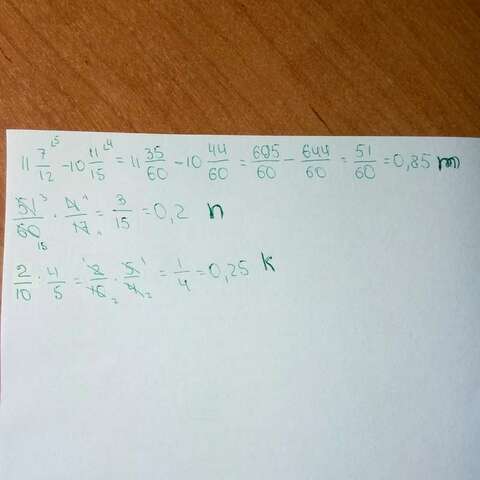 11 7/12 ⁵ - 10 11/15 ⁴ = 11 35/60 - 10 44/60 = 695/60 - 644/60 = 51/60 = 0,85 m
51/60 ³ ₁₅ · 4/17 ¹ ₁ = 3/15 = 0,2 n
2/10 : 4/5 = 2/10 ¹ ₂ · 5/4 ¹ ₂ = 1/4 = 0,25 k